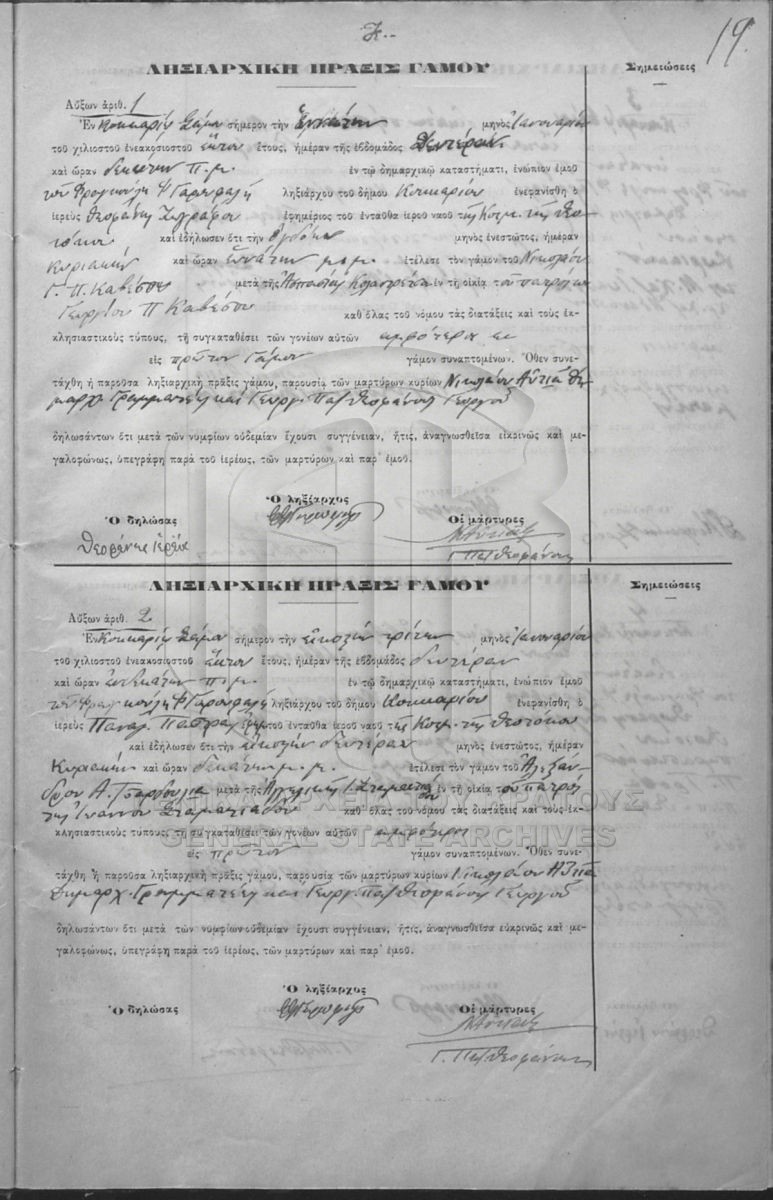 19.
ΛΗΞΙΑΡΧΙΚΗ ΠΡΑΞΙΣ ΓΑΜΟΥ
Σημειώσεις
Αὔξων ἀριθ. 1
Ἐν Κοκκαρίῳ Σάμου σήμερον τὴν ἐννάτην μηνὸς Ἰανουαρίου
τοῦ χιλιοστοῦ ἐνεακοσιοστοῦ ἕκτου ἔτους, ἡμέραν τῆς ἑβδομάδος Δευτέραν
καὶ ὥραν δεκάτην π.μ. ἐν τῷ δημαρχικῷ καταστήματι, ἐνώπιον ἐμοῦ
τοῦ ληξιάρχου τοῦ δήμου Κοκκαρίου ἐνεφανίσθη ὁ
ἱερεὺς Θεοφάνης Ζωγράφου ἐφημέριος τοῦ ἐνταῦθα ἱεροῦ ναοῦ τῆς Κοιμ. τῆς Θεο-
τόκου καὶ ἐδήλωσεν ὅτι τὴν ὀγδόην μηνὸς ἐνεστῶτος, ἡμέραν
Κυριακὴν καὶ ὥραν ἐννάτην μ.μ. ἐτέλεσε τὸν γάμον τοῦ Νικολάου
Γ. Π. Καβέσου μετὰ τῆς Ἀσπασίας ἐν τῇ οἰκίᾳ τοῦ πατρὸς
Γεωργίου Π Καβέσου καθ᾽ ὅλας τοῦ νόμου τὰς διατάξεις καὶ τοὺς ἐκ-
κλησιαστικοὺς τύπους, τῇ συγκαταθέσει τῶν γονέων αὐτῶν ἀμφότεροι
εἰς πρῶτον γάμον γάμον συναπτομένων. Ὅθεν συνε-
τάχθη ἡ παροῦσα ληξιαρχικὴ πρᾶξις γάμου, παρουσίᾳ τῶν μαρτύρων κυρίων Νικολάου
Γραμματέως καὶ Γεωργ. Παπ Θεοφάνους Γεωργοῦ
δηλωσάντων ὅτι μετὰ τῶν νυμφίων οὐδεμίαν ἔχουσι συγγένειαν, ἥτις, ἀναγνωσθεῖσα εἰκρινῶς καὶ με-
γαλοφώνως, ὑπεγράφη παρὰ τοῦ ἱερέως, τῶν μαρτύρων καὶ παρ᾽ ἐμοῦ.
Ὁ ληξίαρχος
Ὁ δηλώσας
Οἱ μάρτυρες
Γ. Παπ Θεοφάνους
ΛΗΞΙΑΡΧΙΚΗ ΠΡΑΞΙΣ ΓΑΜΟΥ
Σημειώσεις
Αὔξων ἀριθ. 2
Ἐν Κοκκαρίῳ Σάμου σήμερον τὴν εἰκοστὴν τρίτην μηνὸς Ἰανουαρίου
τοῦ χιλιοστοῦ ἐνεακοσιοστοῦ ἕκτου ἔτους, ἡμέραν τῆς ἑβδομάδος δευτέραν
καὶ ὥραν ἑνδεκάτην π.μ. ἐν τῷ δημαρχικῷ καταστήματι, ἐνώπιον ἐμοῦ
τοῦ ληξιάρχου τοῦ δήμου Κοκκαρίου ἐνεφανίσθη ὁ
ἱερεὺς Παναγ. τοῦ ἐνταῦθα ἱεροῦ ναοῦ τῆς Κοιμ. τῆς Θεοτόκου
καὶ ἐδήλωσεν ὅτι τὴν εἰκοστὴν δευτέραν μηνὸς ἐνεστῶτος, ἡμέραν
Κυριακὴν καὶ ὥραν δεκάτην μ.μ. ἐτέλεσε τὸν γάμον τοῦ Ἀλεξάν-
δρου Α. μετὰ τῆς Ἀγγελικῆς Ι. ἐν τῇ οἰκίᾳ τοῦ πατρὸς
της Ἰωάννου Σταματιάδου καθ᾽ ὅλας τοῦ νόμου τὰς διατάξεις καὶ τοὺς ἐκ-
κλησιαστικοὺς τύπους, τῇ συγκαταθέσει τῶν γονέων αὐτῶν ἀμφότεροι
εἰς πρῶτον γάμον συναπτομένων. Ὅθεν συνε-
τάχθη ἡ παροῦσα ληξιαρχικὴ πρᾶξις γάμου, παρουσίᾳ τῶν μαρτύρων κυρίων Νικολάου
Δημαρχ. Γραμματέως καὶ Γεωργ. Παπ Θεοφάνους Γεωργοῦ
δηλωσάντων ὅτι μετὰ τῶν νυμφίων οὐδεμίαν ἔχουσι συγγένειαν, ἥτις, ἀναγνωσθεῖσα εὐκρινῶς καὶ με-
γαλοφώνως, ὑπεγράφη παρὰ τοῦ ἱερέως, τῶν μαρτύρων καὶ παρ᾽ ἐμοῦ.
Ὁ ληξίαρχος
Ὁ δηλώσας
Οἱ μάρτυρες
Γ. Παπ Θεοφάνους
GENERAL STATE ARCHIVES